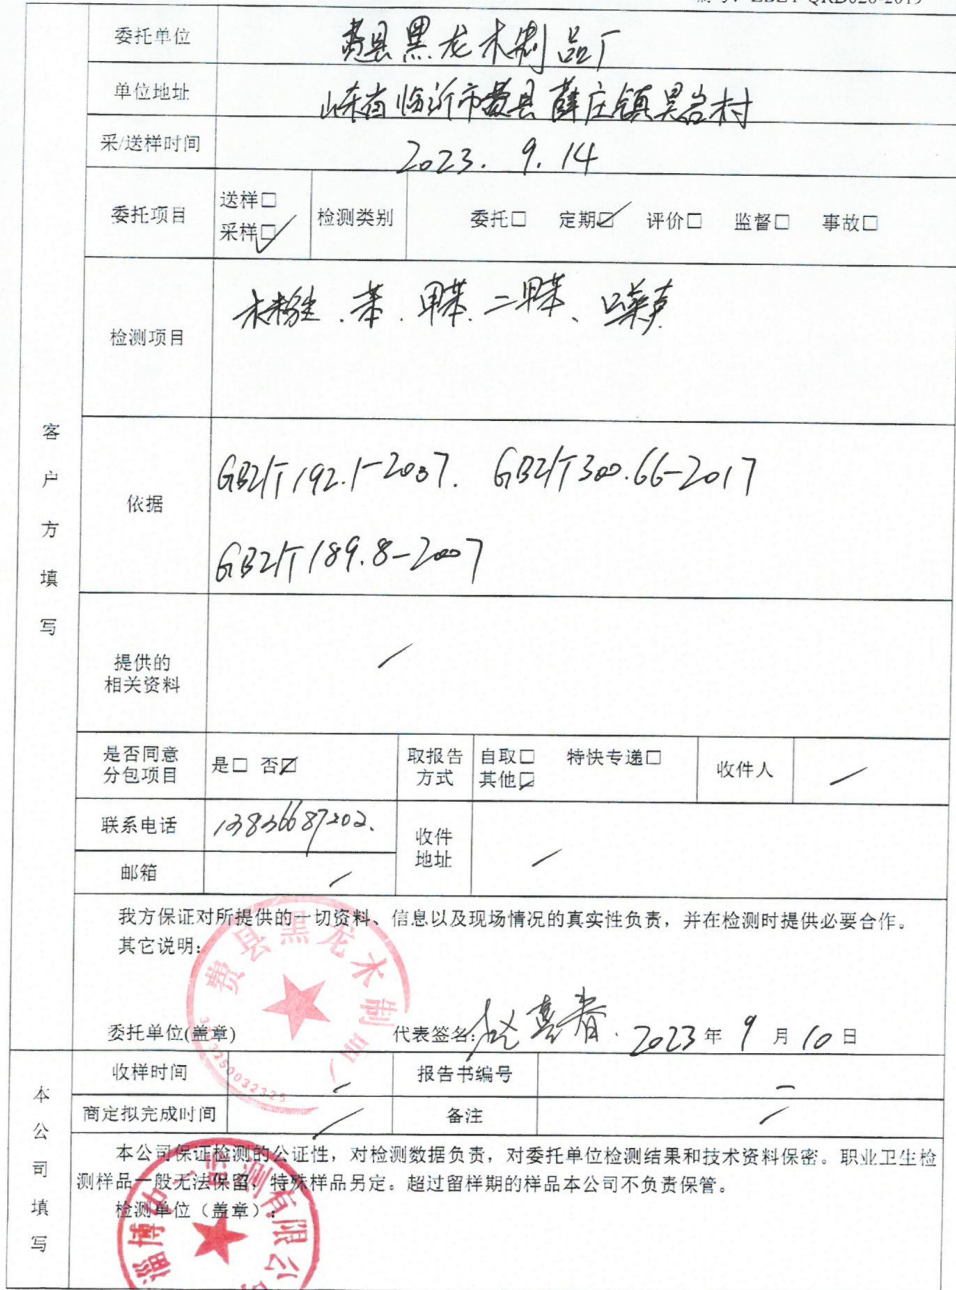 费县黑龙木制品厂
委托单位
山东省临沂市费县薛庄镇吴岩村
单位地址
采/送样时间
2023. 9. 14
委托项目
送样□
采样☑
检测类别
委托□ 定期☑ 评价□ 监督□ 事故□
检测项目
木粉尘、苯、甲苯、二甲苯、噪声
客户方填写
依据
GBZ/T 192.1-2007. GBZ/T 300.66-2017
GBZ/T 189.8-2007
提供的
相关资料
是否同意
分包项目
是□ 否☑
取报告
方式
自取□ 特快专递□
其他☑
收件人
联系电话
收件
地址
邮箱
我方保证对所提供的一切资料、信息以及现场情况的真实性负责，并在检测时提供必要合作。
其它说明：
费县黑龙木制品厂
委托单位(盖章)
代表签名: 2023 年 9 月 10 日
本公司填写
收样时间
报告书编号
商定拟完成时间
备注
本公司保证检测的公证性，对检测数据负责，对委托单位检测结果和技术资料保密。职业卫生检
测样品一般无法保留，特殊样品另定。超过留样期的样品本公司不负责保管。
检测单位（盖章）：